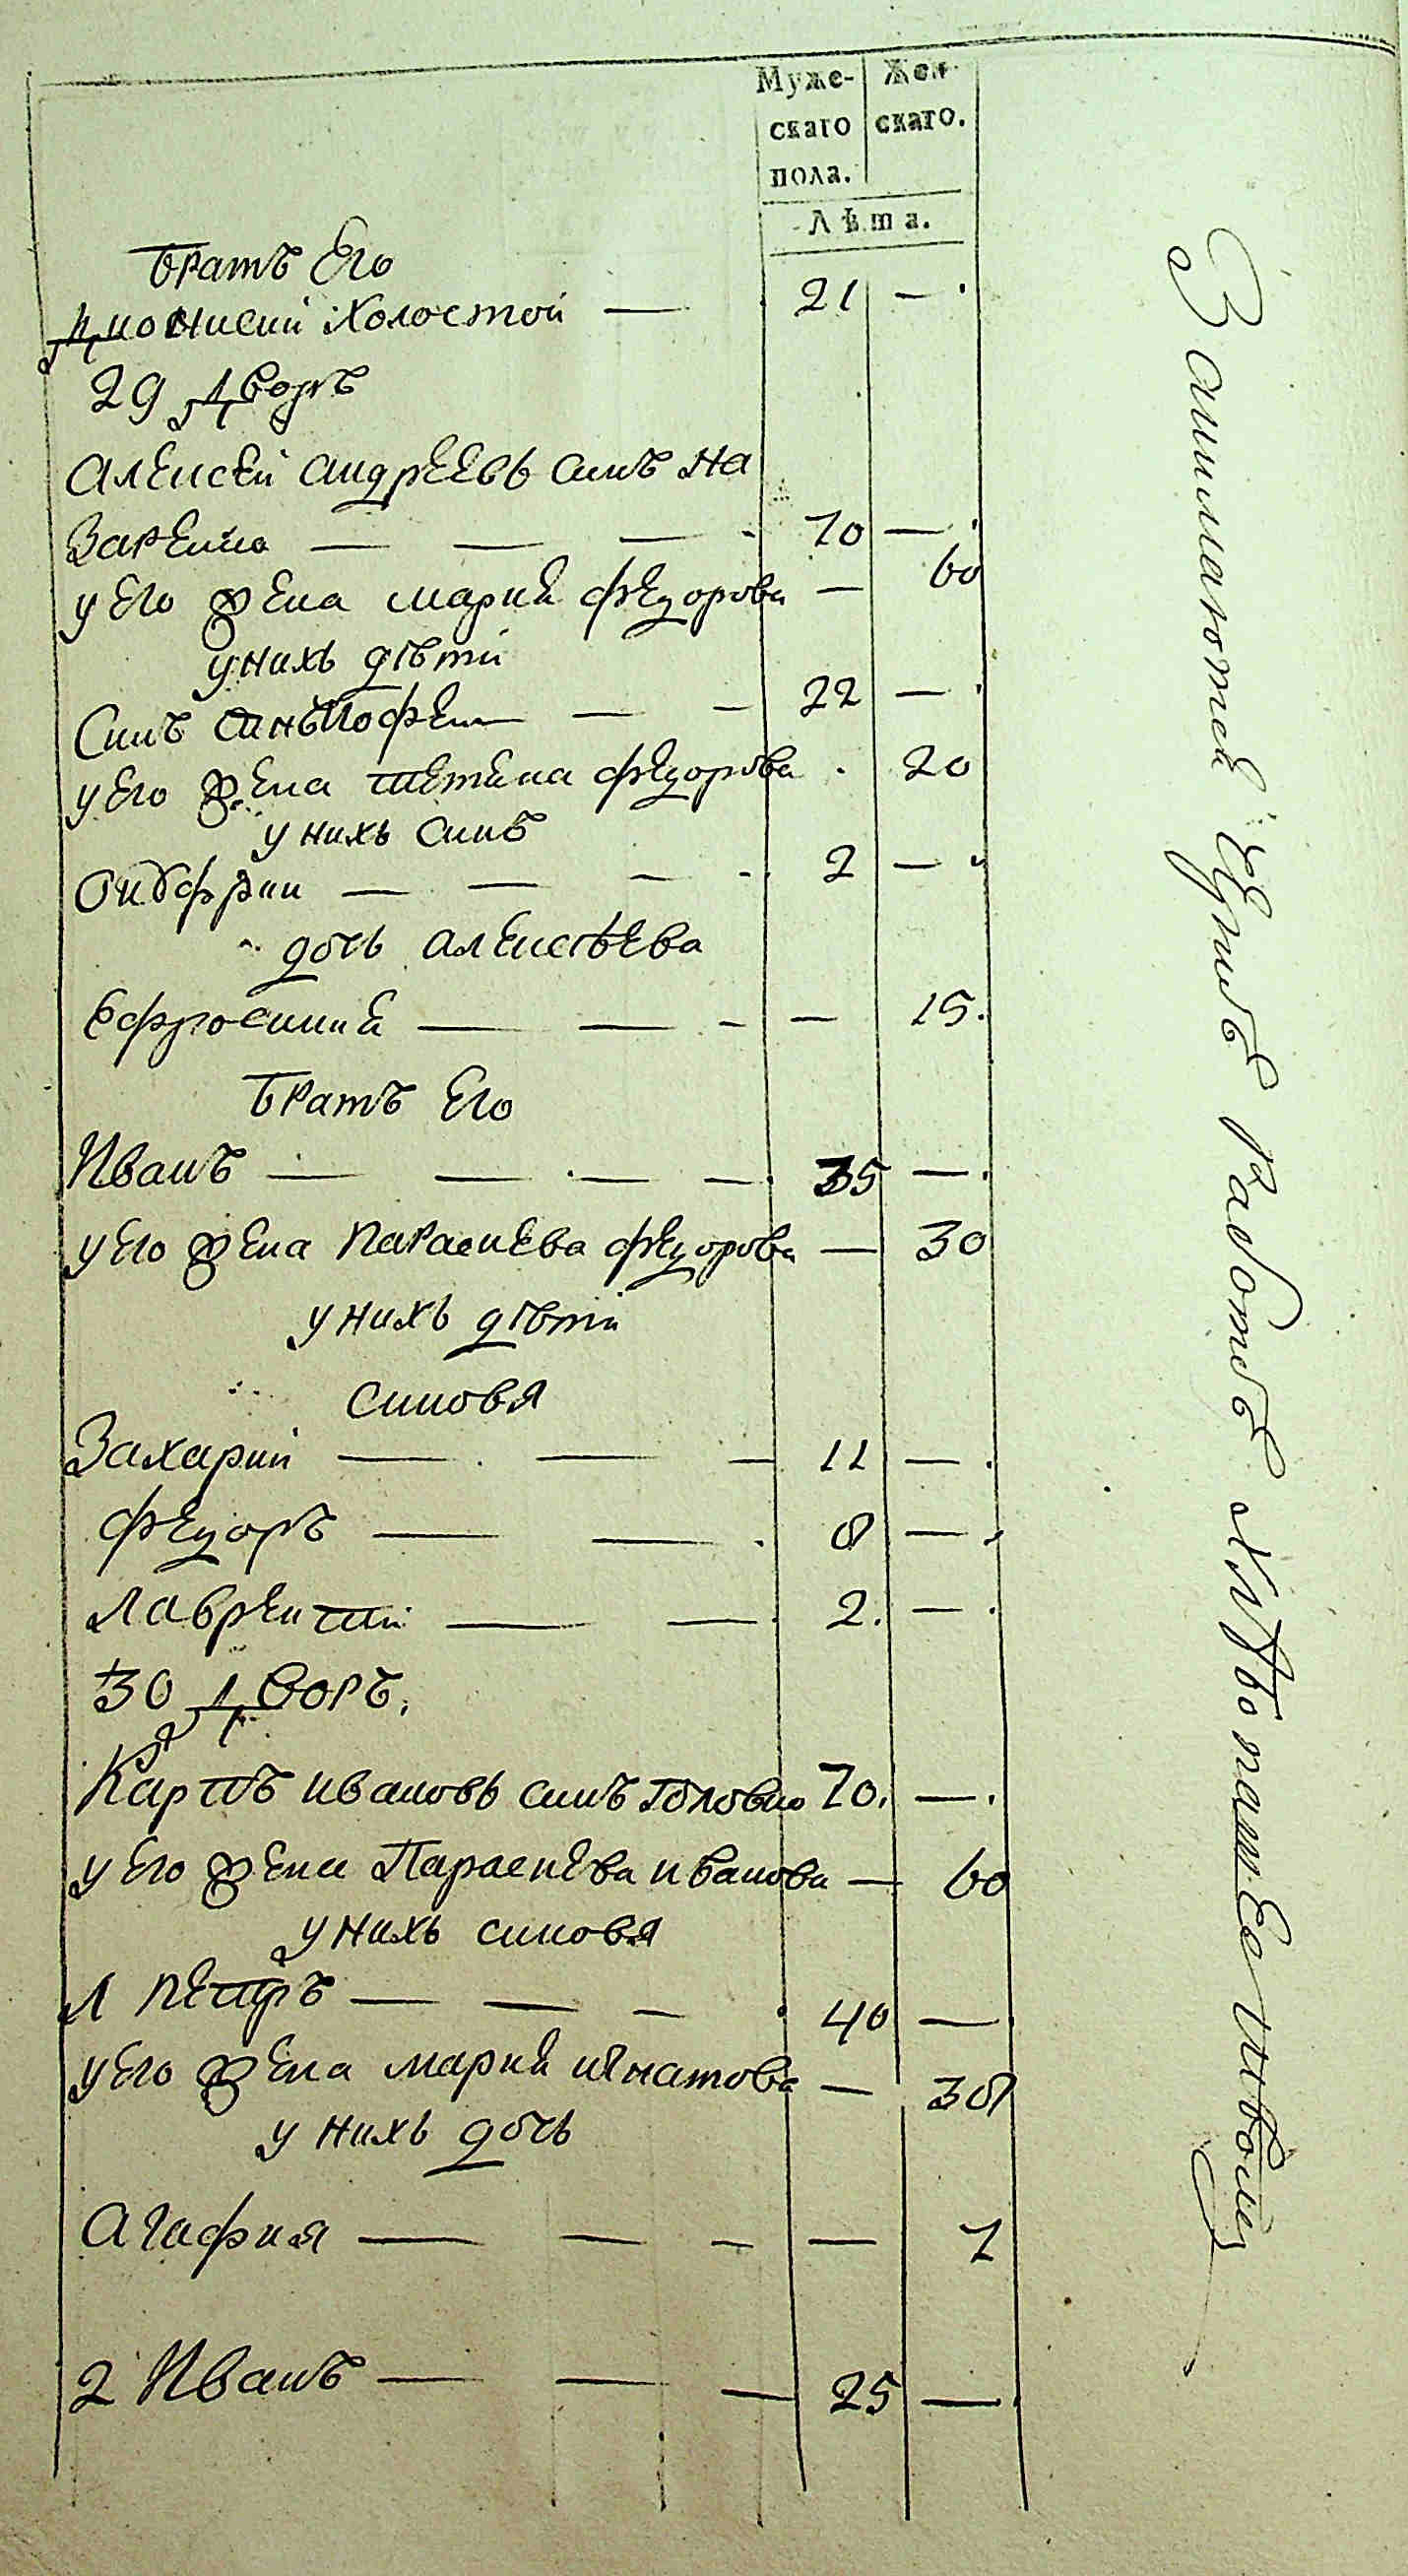 Муже-
скаго
пола.
Жен-
скаго.
Лѣта.
Братъ Его
Дионисий Холостой — 21 —
29 Дворъ
Алексей Андреевъ синъ На
Заренко — — — 70 —
у Его жена Мария Федорова — 60
у нихъ дѣти
Синъ — — 22 —
у Его жена Федорова . 20
у нихъ синъ
— — — 2 —
дочь Алексѣева
Ефросиния — — — — 15.
Братъ Его
Иванъ — — — — 35 —
у Его жена Параскева Федорова — 30
у нихъ дѣти
синовя
Захарий — — — 11 —
Федоръ — — 8 —
Лаврентий — — 2. —
30 Дворъ.
Карпъ Ивановъ синъ Головко 70. —
у Его жена Параскева Иванова — 60
у нихъ синовя
1 Петръ — — — 40 —
у Его жена Мария Игнатова — 38
у нихъ дочь
Агафия — — — — 7
2 Иванъ — — — 25 —
Занимаются работою хлѣбопашественною